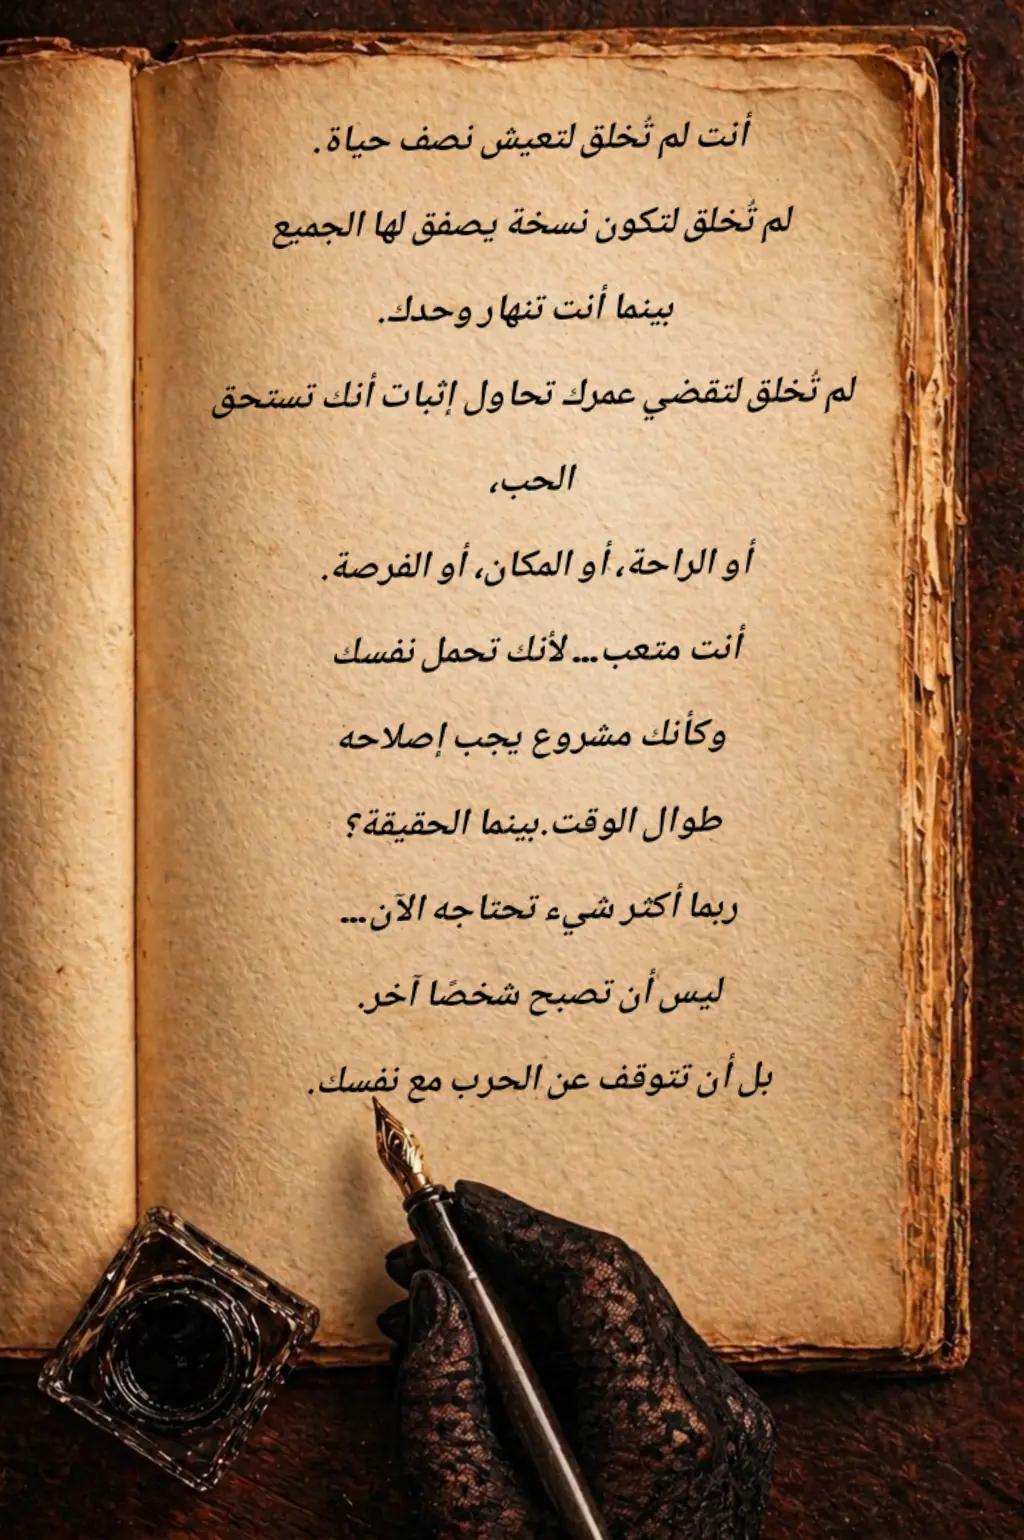 أنت لم تُخلق لتعيش نصف حياة.
لم تُخلق لتكون نسخة يصفق لها الجميع
بينما أنت تنهار وحدك.
لم تُخلق لتقضي عمرك تحاول إثبات أنك تستحق
الحب،
أو الراحة، أو المكان، أو الفرصة.
أنت متعب... لأنك تحمل نفسك
وكأنك مشروع يجب إصلاحه
طوال الوقت.بينما الحقيقة؟
ربما أكثر شيء تحتاجه الآن...
ليس أن تصبح شخصًا آخر.
بل أن تتوقف عن الحرب مع نفسك.